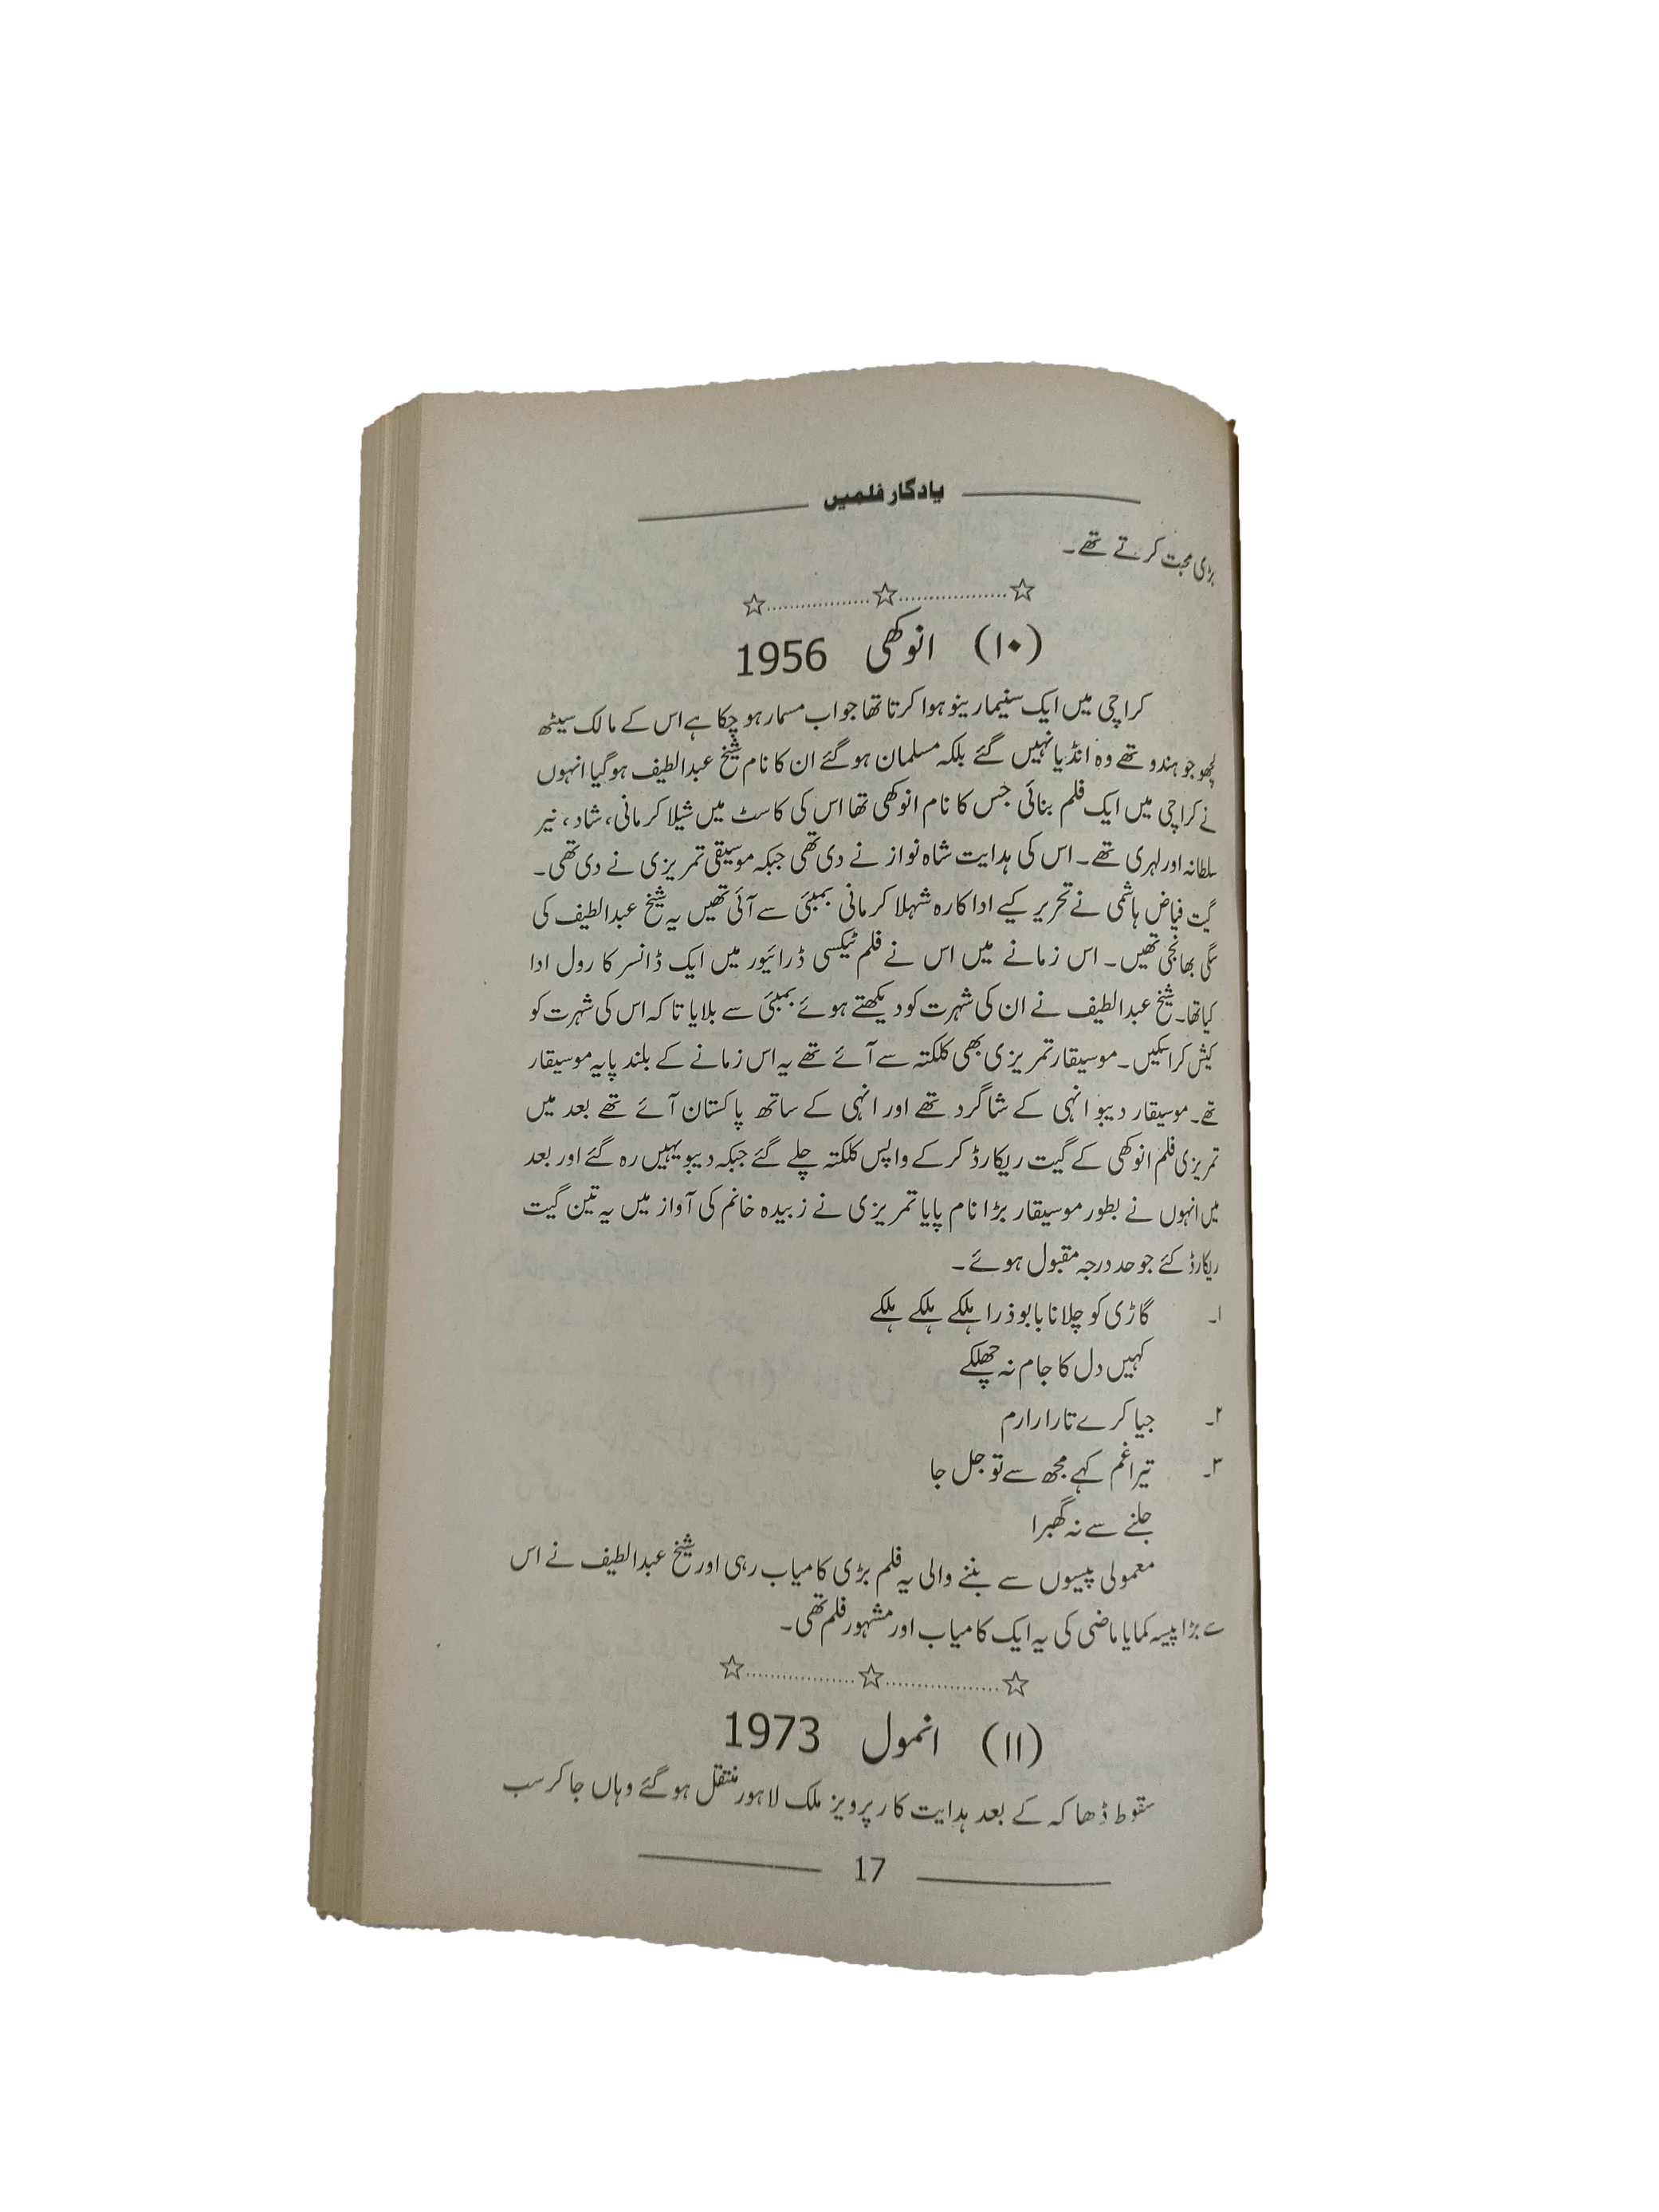 یادگار فلمیں
بڑی محبت کرتے تھے۔
☆..................☆..................☆
(۱۰) انوکھی 1956
کراچی میں ایک سنیما رینو ہوا کرتا تھا جو اب مسمار ہو چکا ہے اس کے مالک سیٹھ
لچھو جو ہندو تھے وہ انڈیا نہیں گئے بلکہ مسلمان ہو گئے ان کا نام شیخ عبدالطیف ہو گیا انہوں
نے کراچی میں ایک فلم بنائی جس کا نام انوکھی تھا اس کی کاسٹ میں شیلا کرمانی، شاد، نیر
سلطانہ اور لہری تھے۔ اس کی ہدایت شاہ نواز نے دی تھی جبکہ موسیقی تمریزی نے دی تھی۔
گیت فیاض ہاشمی نے تحریر کیے اداکارہ شہلا کرمانی بمبئی سے آئی تھیں یہ شیخ عبدالطیف کی
سگی بھانجی تھیں۔ اس زمانے میں اس نے فلم ٹیکسی ڈرائیور میں ایک ڈانسر کا رول ادا
کیا تھا۔ شیخ عبدالطیف نے ان کی شہرت کو دیکھتے ہوئے بمبئی سے بلایا تا کہ اس کی شہرت کو
کیش کرا سکیں۔ موسیقار تمریزی بھی کلکتہ سے آئے تھے یہ اس زمانے کے بلند پایہ موسیقار
تھے۔ موسیقار دیبو انہی کے شاگرد تھے اور انہی کے ساتھ پاکستان آئے تھے بعد میں
تمریزی فلم انوکھی کے گیت ریکارڈ کر کے واپس کلکتہ چلے گئے جبکہ دیبو یہیں رہ گئے اور بعد
میں انہوں نے بطور موسیقار بڑا نام پایا تمریزی نے زبیدہ خانم کی آواز میں یہ تین گیت
ریکارڈ کئے جو حد درجہ مقبول ہوئے۔
۱۔ گاڑی کو چلانا بابو ذرا ہلکے ہلکے ہلکے
کہیں دل کا جام نہ چھلکے
۲۔ جیا کرے تارا رارم
۳۔ تیرا غم کہے مجھ سے تو جل جا
جلنے سے نہ گھبرا
معمولی پیسوں سے بننے والی یہ فلم بڑی کامیاب رہی اور شیخ عبدالطیف نے اس
سے بڑا پیسہ کمایا ماضی کی یہ ایک کامیاب اور مشہور فلم تھی۔
☆..................☆..................☆
(۱۱) انمول 1973
سقوط ڈھاکہ کے بعد ہدایت کار پرویز ملک لاہور منتقل ہو گئے وہاں جا کر سب
17